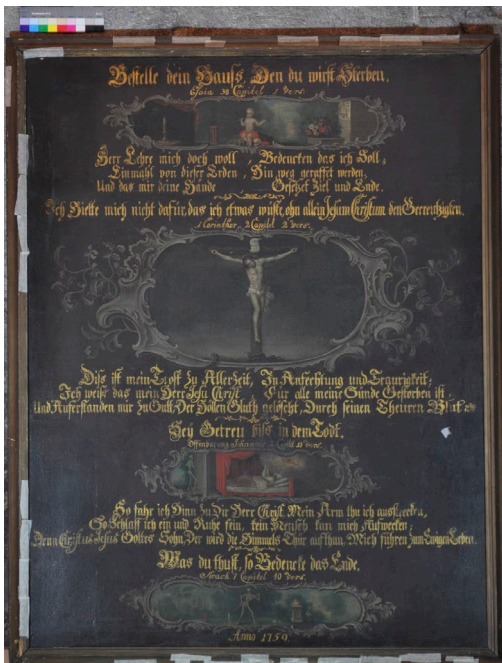 Bestelle dein Hauß, Den du wirst Sterben.
Esaia 38 Capitel 1 Vers.
Herr Lehre mich doch woll, Bedencken das ich Soll,
Einmahl von dieser Erden, Hin weg geraffet werden,
Und das mir deine Hände Gesetzet Ziel und Ende.
Ich Hielte mich nicht dafür, das ich etwas wüste, ohn allein Jesum Christum den Gecreutzigten.
1 Corinther, 2 Capitel 2 Vers.
Diß ist mein Trost zu Aller Zeit, In Anfechtung und Traurigkeit,
Ich weiß das mein Herr Jesu Christ, Für alle meine Sünde Gestorben ist,
Und Auferstanden mir zu Gutt, Der Höllen Gluth gelöscht, Durch seinen Theuren Blut
Sey Getreu biß in dem Todt.
Offenbarung Johannis 2 Capitel 10 Vers.
So fahr ich Hinn zu Dir Herr Christ, Mein Arm thu ich ausstrecken,
So Schlaff ich ein und Ruhe fein, kein Mensch kan mich Aufwecken,
Denn Christus Jesus Gottes Sohn, Der wird die Himmels Thür aufthun, Mich führen zum Ewigen Leben.
Was du thust, so Bedencke das Ende.
Sirach 7 Capitel 40 Vers.
Anno 1759